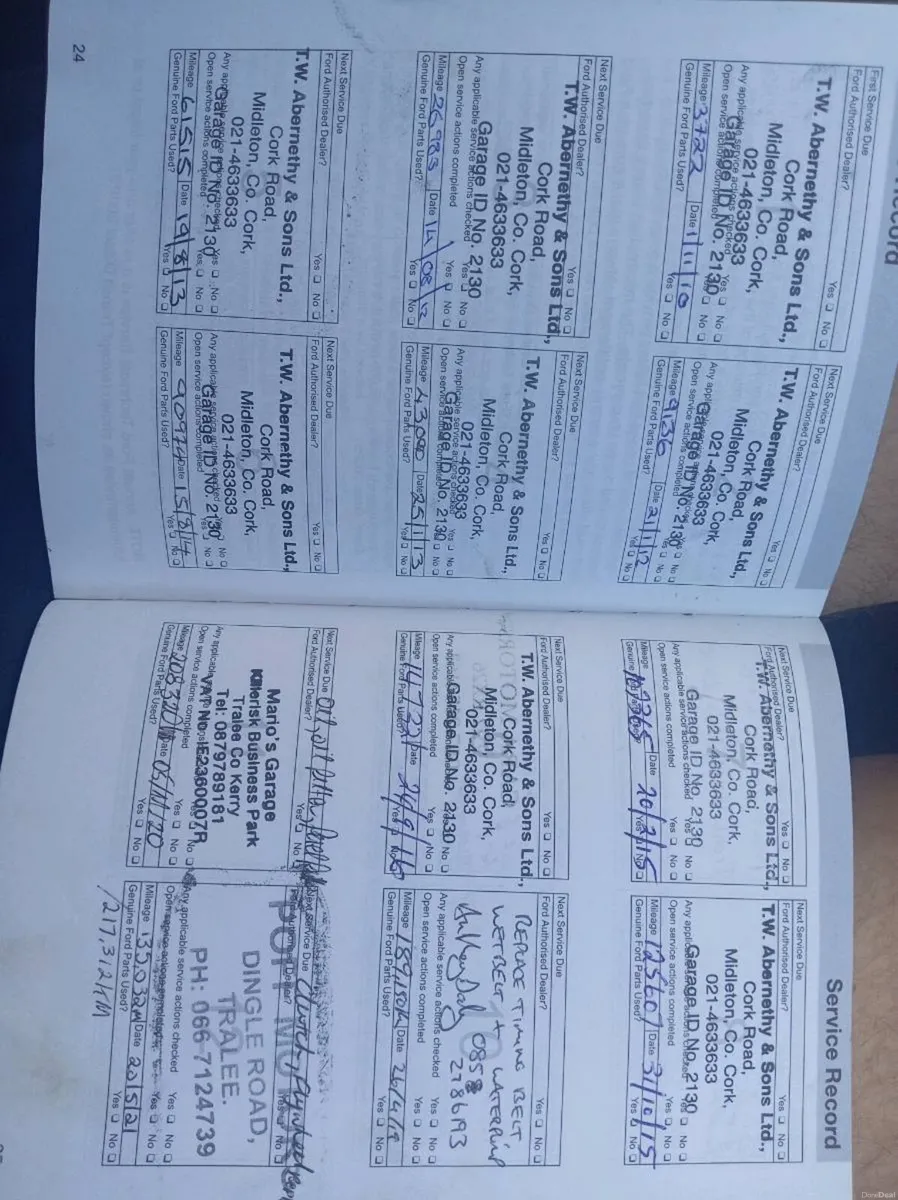 ecord
First Service Due
Ford Authorised Dealer?
Yes No
T.W. Abernethy & Sons Ltd.,
Cork Road,
Midleton, Co. Cork,
021-4633633
Garage ID No. 2130
Any applicable service actions checked Yes No
Open service actions completed Yes No
Mileage 3722 Date 1/11/10
Genuine Ford Parts Used? Yes No
Next Service Due
Ford Authorised Dealer?
Yes No
T.W. Abernethy & Sons Ltd.,
Cork Road,
Midleton, Co. Cork,
021-4633633
Garage ID No. 2130
Any applicable service actions checked Yes No
Open service actions completed Yes No
Mileage 9136 Date 21/1/12
Genuine Ford Parts Used? Yes No
Next Service Due
Ford Authorised Dealer?
Yes No
T.W. Abernethy & Sons Ltd.,
Cork Road,
Midleton, Co. Cork,
021-4633633
Garage ID No. 2130
Any applicable service actions checked Yes No
Open service actions completed Yes No
Mileage 26983 Date 14/08/12
Genuine Ford Parts Used? Yes No
Next Service Due
Ford Authorised Dealer?
Yes No
T.W. Abernethy & Sons Ltd.,
Cork Road,
Midleton, Co. Cork,
021-4633633
Garage ID No. 2130
Any applicable service actions checked Yes No
Open service actions completed Yes No
Mileage 43090 Date 25/1/13
Genuine Ford Parts Used? Yes No
Next Service Due
Ford Authorised Dealer?
Yes No
T.W. Abernethy & Sons Ltd.,
Cork Road,
Midleton, Co. Cork,
021-4633633
Garage ID No. 2130
Any applicable service actions checked Yes No
Open service actions completed Yes No
Mileage 61515 Date 19/8/13
Genuine Ford Parts Used? Yes No
Next Service Due
Ford Authorised Dealer?
Yes No
T.W. Abernethy & Sons Ltd.,
Cork Road,
Midleton, Co. Cork,
021-4633633
Garage ID No. 2130
Any applicable service actions checked Yes No
Open service actions completed Yes No
Mileage 90974 Date 15/8/14
Genuine Ford Parts Used? Yes No
24
Service Record
Next Service Due
Ford Authorised Dealer?
Yes No
T.W. Abernethy & Sons Ltd.,
Cork Road,
Midleton, Co. Cork,
021-4633633
Garage ID No. 2130
Any applicable service actions checked Yes No
Open service actions completed Yes No
Mileage Date 20/2/15
Genuine Yes No
Next Service Due
Ford Authorised Dealer?
Yes No
T.W. Abernethy & Sons Ltd.,
Cork Road,
Midleton, Co. Cork,
021-4633633
Garage ID No. 2130
Any applicable service actions checked Yes No
Open service actions completed Yes No
Mileage 125601 Date 31/10/15
Genuine Ford Parts Used? Yes No
Next Service Due
Ford Authorised Dealer?
Yes No
T.W. Abernethy & Sons Ltd.,
Cork Road,
Midleton, Co. Cork,
021-4633633
Garage ID No. 2130
Any applicable
Open service actions completed Yes No
Mileage 147721 Date 29/9/16
Genuine Ford Parts Used? Yes No
Next Service Due
Ford Authorised Dealer?
Yes No
REPLACE TIMING BELT
WETBELT + WATERPUMP
085 8
278693
Any applicable service actions checked Yes No
Open service actions completed Yes No
Mileage Date 26/4/19
Genuine Ford Parts Used? Yes No
Next Service Due
Ford Authorised Dealer?
Oil, oil filter,
Yes No
Mario's Garage
Kilerisk Business Park
Tralee Co Kerry
Tel: 0879789181
VAT No IE2360007R
Any applicable
Open service actions completed Yes No
Mileage 208320 Date 05/11/20
Genuine Ford Parts Used? Yes No
Next Service Due
Clutch,
DINGLE ROAD,
TRALEE.
PH: 066-7124739
Any applicable service actions checked Yes No
Yes No
Mileage 135,032M Date 20/5/21
Genuine Ford Parts Used? Yes No
217,312KM
DoneDeal